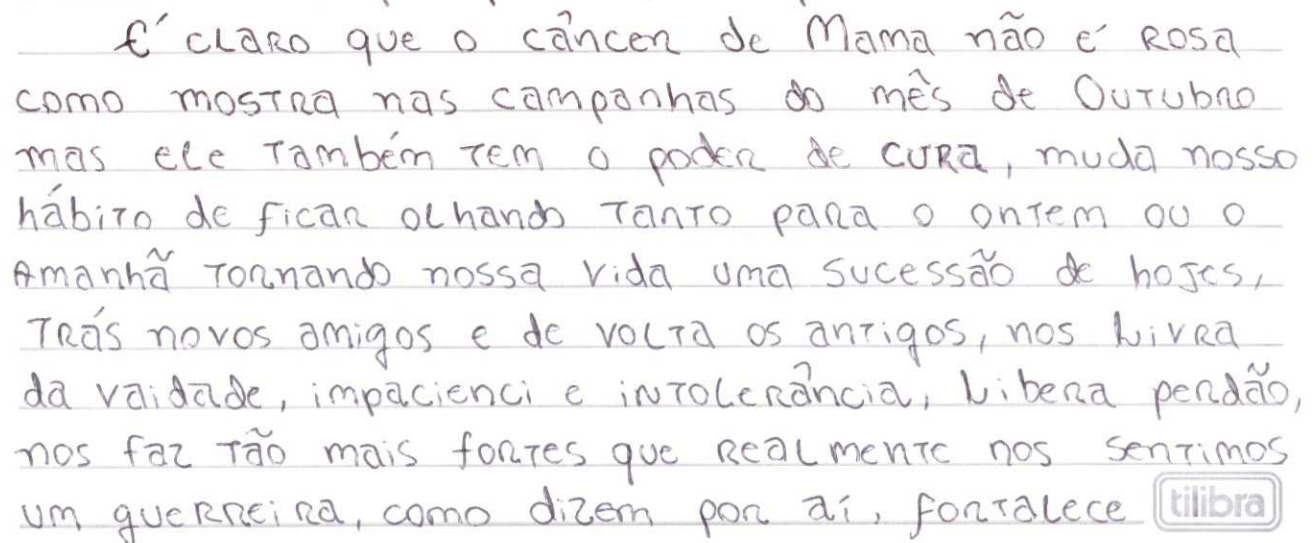 É claro que o câncer de Mama não é Rosa
como mostra nas campanhas do mês de Outubro
mas ele também tem o poder de cura, muda nosso
hábito de ficar olhando tanto para o ontem ou o
Amanhã tornando nossa vida uma sucessão de hojes,
trás novos amigos e de volta os antigos, nos livra
da vaidade, impacienci e intolerância, libera perdão,
nos faz tão mais fortes que realmente nos sentimos
um guerreira, como dizem por aí, fortalece tilibra